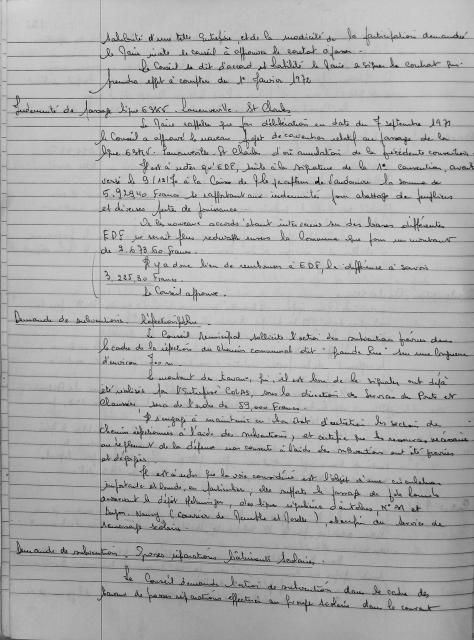 d'une telle Entreprise, et de la modicité de la participation demandée
le Maire invite le conseil à approuver le contrat à passer.
Le Conseil se dit d'accord et habilite le Maire à signer le contrat qui
prendra effet à compter du 1er Janvier 1972
Indemnité de passage ligne 63KV. Laneuveville. St Charles
Le Maire rappelle que par délibération en date du 7 septembre 1971
le Conseil a approuvé le nouveau projet de convention relatif au passage de la
ligne 63KV. Laneuveville. St Charles d'où annulation de la précédente convention
Il est à noter qu'EDF, suite à la signature de la 1e convention, avait
versé le 9/12/70 à la Caisse de Mr le percepteur de la somme de
5.929,40 Francs se rapportant aux indemnités pour abattage de peupliers
et diverses pertes de jouissance.
Or les nouveaux accords étant intervenus sur des bases différentes
EDF ne serait plus redevable envers la Commune que pour un montant
de 2.693,60 Francs.
Il y a donc lieu de rembourser à EDF la différence à savoir
3.235,80 Francs.
Le Conseil approuve.
Demande de subvention. Réfection
Le Conseil Municipal sollicite l'octroi des subventions prévues dans
le cadre de la réfection du chemin communal dit "Grande Rue" sur une longueur
d'environ 700 m.
Le montant des travaux, qui, il est bon de le signaler ont déjà
été réalisés par l'Entreprise COLAS, sous la direction du Service des Ponts et
Chaussées sera de l'ordre de 59.000 Francs.
Il s'engage à maintenir en bon état d'entretien les sections de
chemin réfectionnées à l'aide des subventions, et certifie que les ressources nécessaires
au règlement de la dépense non couverte à l'aide des subventions ont été prévues
et dégagées.
Il est à noter que la voie considérée est l'objet d'une circulation
importante et lourde, en particulier, elle supporte le passage de poids lourds
desservant le dépôt, des lignes régulières d'autobus, N° 21 et
Nancy (Courriers de et), ainsi que du Service de
ramassage scolaire.
Demande de subvention. Grosses réparations bâtiments scolaires.
Le Conseil demande l'octroi de subvention dans le cadre des
travaux de grosses réparations effectués au groupe scolaire dans le courant